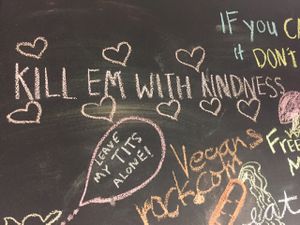 IF YOU
KILL EM WITH KINDNESS
LEAVE
MY TITS
ALONE!
Vegans
rock.com
eat